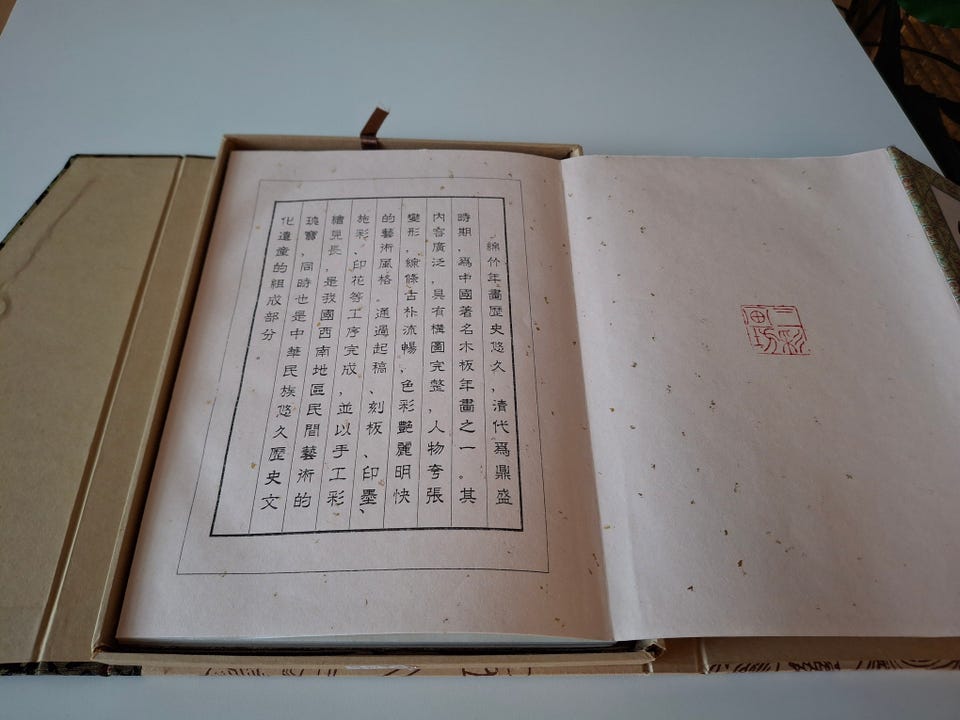 綿竹年畫歷史悠久，清代爲鼎盛
時期，爲中國著名木板年畫之一。其
內容廣泛，具有構圖完整，人物夸張
變形，線條古朴流暢，色彩艷麗明快
的藝術風格。通過起稿、刻板、印墨、
施彩、印花等工序完成，並以手工彩
繪見長，是我國西南地區民間藝術的
瑰寶，同時也是中華民族悠久歷史文
化遺産的組成部分
彩
画坊